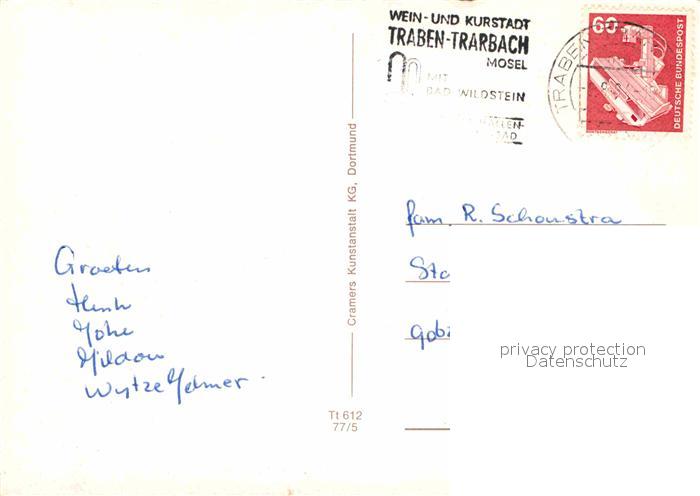 WEIN- UND KURSTADT
TRABEN-TRARBACH
MOSEL
MIT
BAD WILDSTEIN
60
DEUTSCHE BUNDESPOST
TRABEN
Cramers Kunstanstalt KG, Dortmund
fam. R. Schoustra
Sta
Gobi
Groeten
Henk
Wytze Jelmer
privacy protection
Datenschutz
Tt 612
77/5